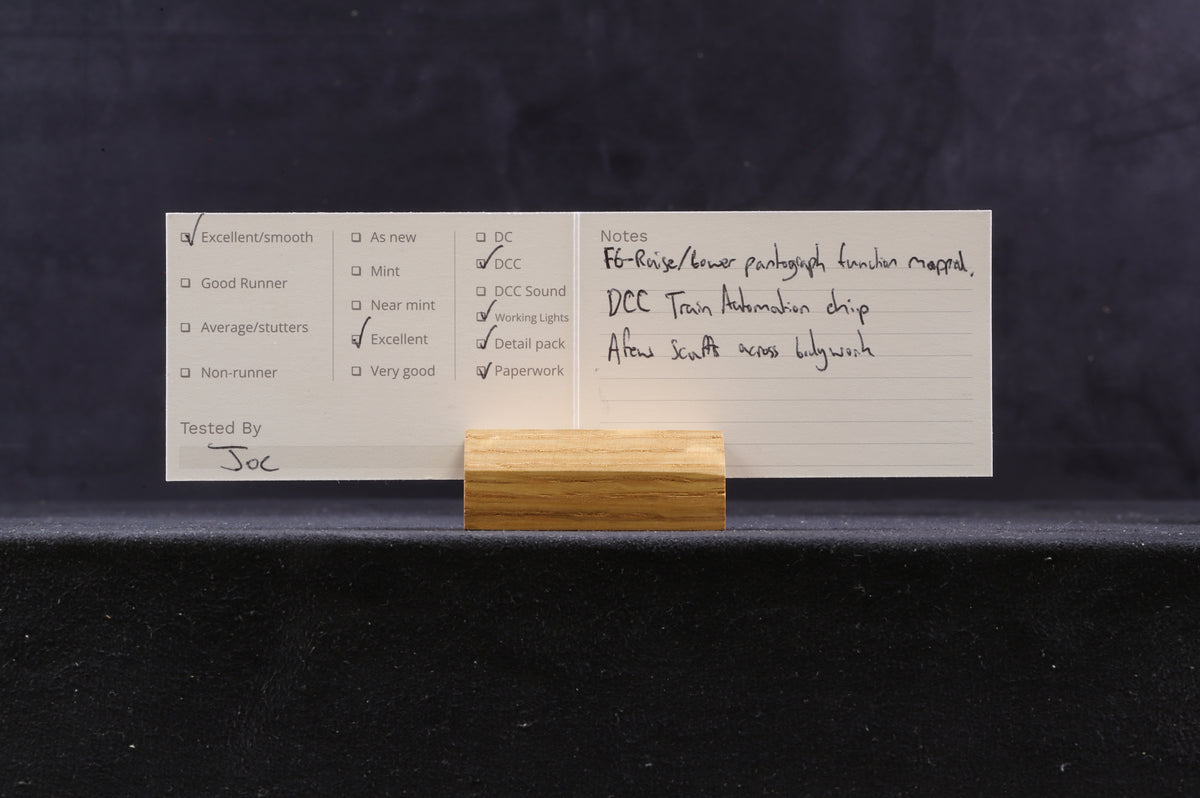 Excellent/smooth
Good Runner
Average/stutters
Non-runner
As new
Mint
Near mint
Excellent
Very good
DC
DCC
DCC Sound
Working Lights
Detail pack
Paperwork
Tested By
Joe
Notes
F6-Raise/Lower pantograph function mapped.
DCC Train Automation chip
A few scuffs across bodywork